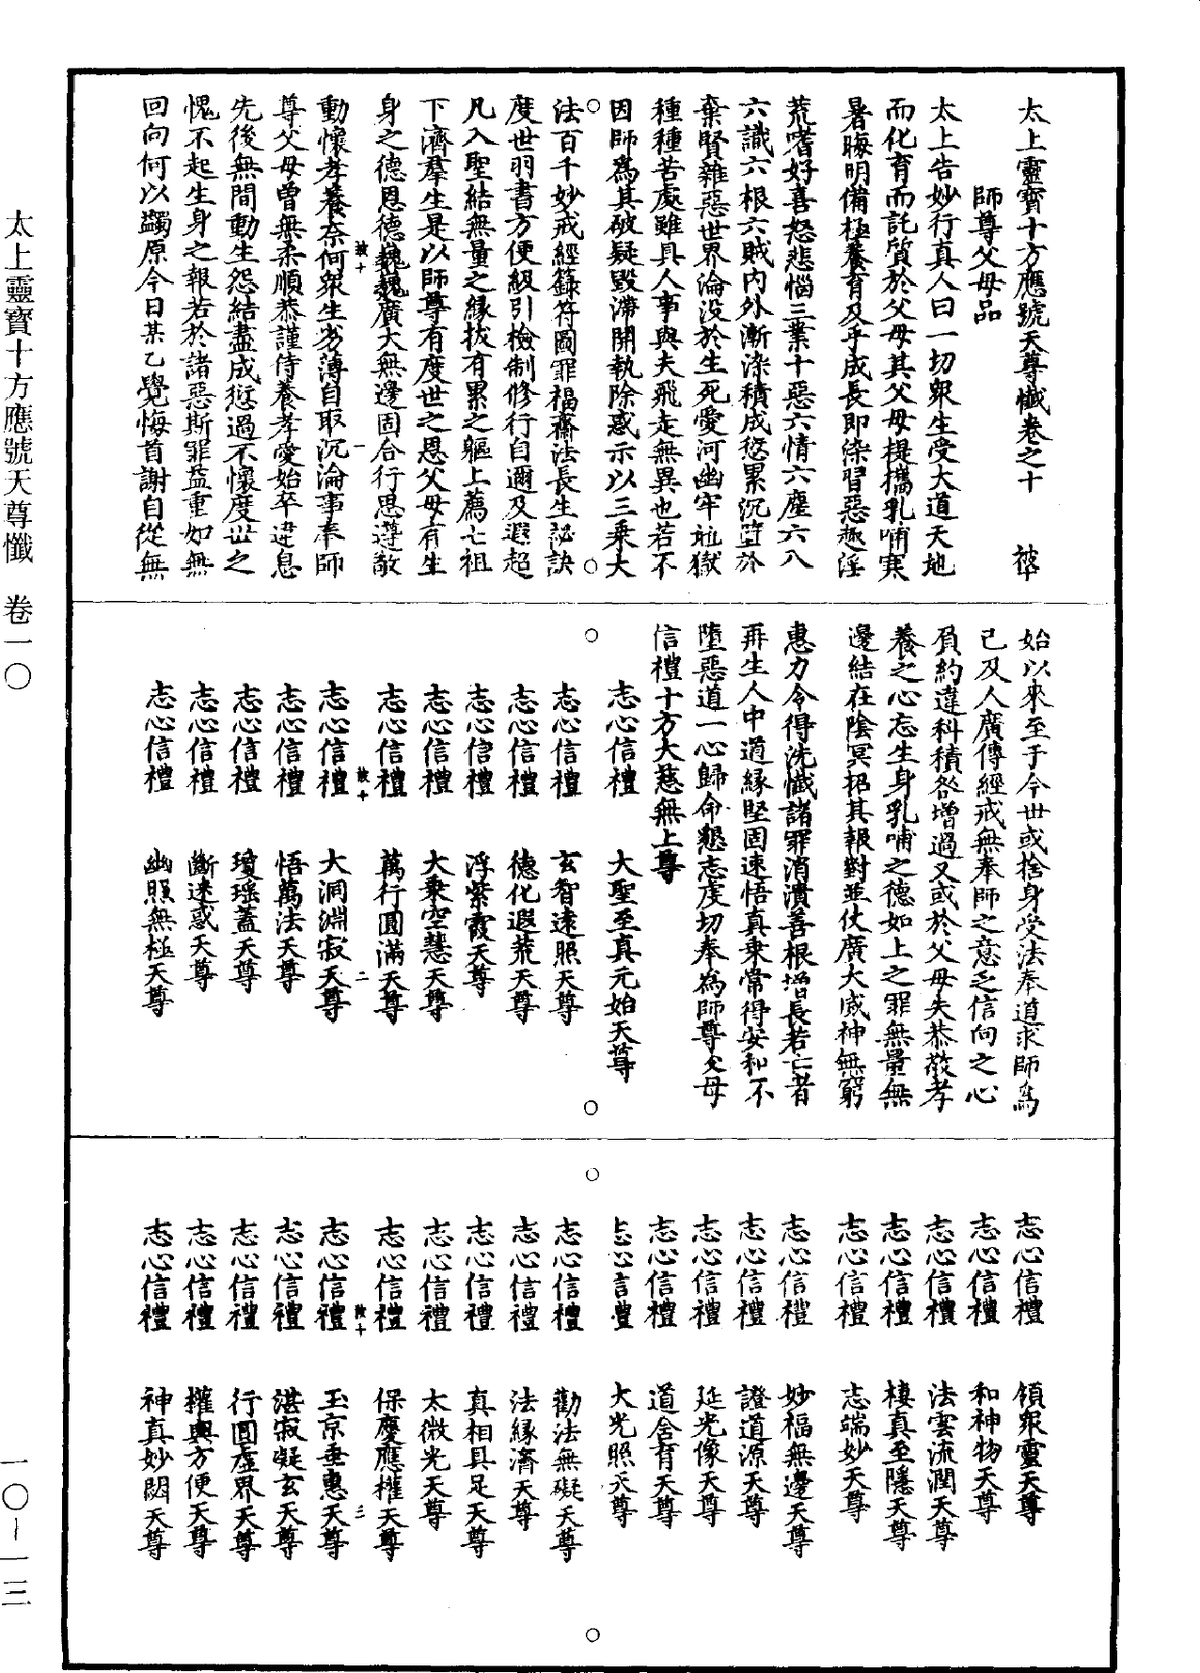 太上靈寶十方應號天尊懺卷之十
師尊父母品
太上告妙行真人曰一切衆生受大道天地
而化育而託質於父母其父母提攜乳哺寒
暑晦明備極養育及乎成長即染習惡趣淫
荒嗜好喜怒悲惱三業十惡六情六塵六八
六識六根六賊內外漸染積成愆累沉墮於
棄賢雜惡世界淪没於生死愛河幽牢地獄
種種苦處雖具人事與夫飛走無異也若不
因師爲其破疑毀滯開執除惑示以三乘大
法百千妙戒經籙符圖罪福齋法長生祕訣
度世羽書方便級引檢制修行自邇及遐超
凡入聖結無量之緣拔有累之軀上薦七祖
下濟羣生是以師尊有度世之恩父母有生
身之德恩德巍巍廣大無邊固合行思遵敬
動懷孝養奈何衆生劣薄自取沉淪事奉師
尊父母曾無柔順恭謹侍養孝愛始卒違息
先後無間動生怨結盡成愆過不懷度世之
愧不起生身之報若於諸惡斯罪益重如無
回向何以蠲原今日某乙覺悔首謝自從無
始以來至于今世或捨身受法奉道求師爲
己及人廣傳經戒無奉師之意乏信向之心
負約違科積咎增過又或於父母失恭敬孝
養之心忘生身乳哺之德如上之罪無量無
邊結在陰冥招其報對並仗廣大威神無窮
惠力令得洗懺諸罪消瀆善根增長若亡者
再生人中道緣堅固速悟真乘常得安和不
墮惡道一心歸命懇志虔切奉爲師尊父母
信禮十方大慈無上尊
志心信禮 大聖至真元始天尊
志心信禮 玄智遠照天尊
志心信禮 德化遐荒天尊
志心信禮 浮紫霞天尊
志心信禮 大乘空慧天尊
志心信禮 萬行圓滿天尊
志心信禮 大洞淵寂天尊
志心信禮 悟萬法天尊
志心信禮 瓊瑶蓋天尊
志心信禮 斷迷惑天尊
志心信禮 幽照無極天尊
志心信禮 領衆靈天尊
志心信禮 和神物天尊
志心信禮 法雲流潤天尊
志心信禮 棲真至隱天尊
志心信禮 志端妙天尊
志心信禮 妙福無邊天尊
志心信禮 證道源天尊
志心信禮 延光像天尊
志心信禮 道含育天尊
志心信禮 大光照天尊
志心信禮 勸法無礙天尊
志心信禮 法緣濟天尊
志心信禮 真相具足天尊
志心信禮 太微光天尊
志心信禮 保慶應權天尊
志心信禮 玉京垂惠天尊
志心信禮 湛寂凝玄天尊
志心信禮 行圓虛界天尊
志心信禮 權輿方便天尊
志心信禮 神真妙閟天尊
太上靈寶十方應號天尊懺 卷一〇
一〇—一三